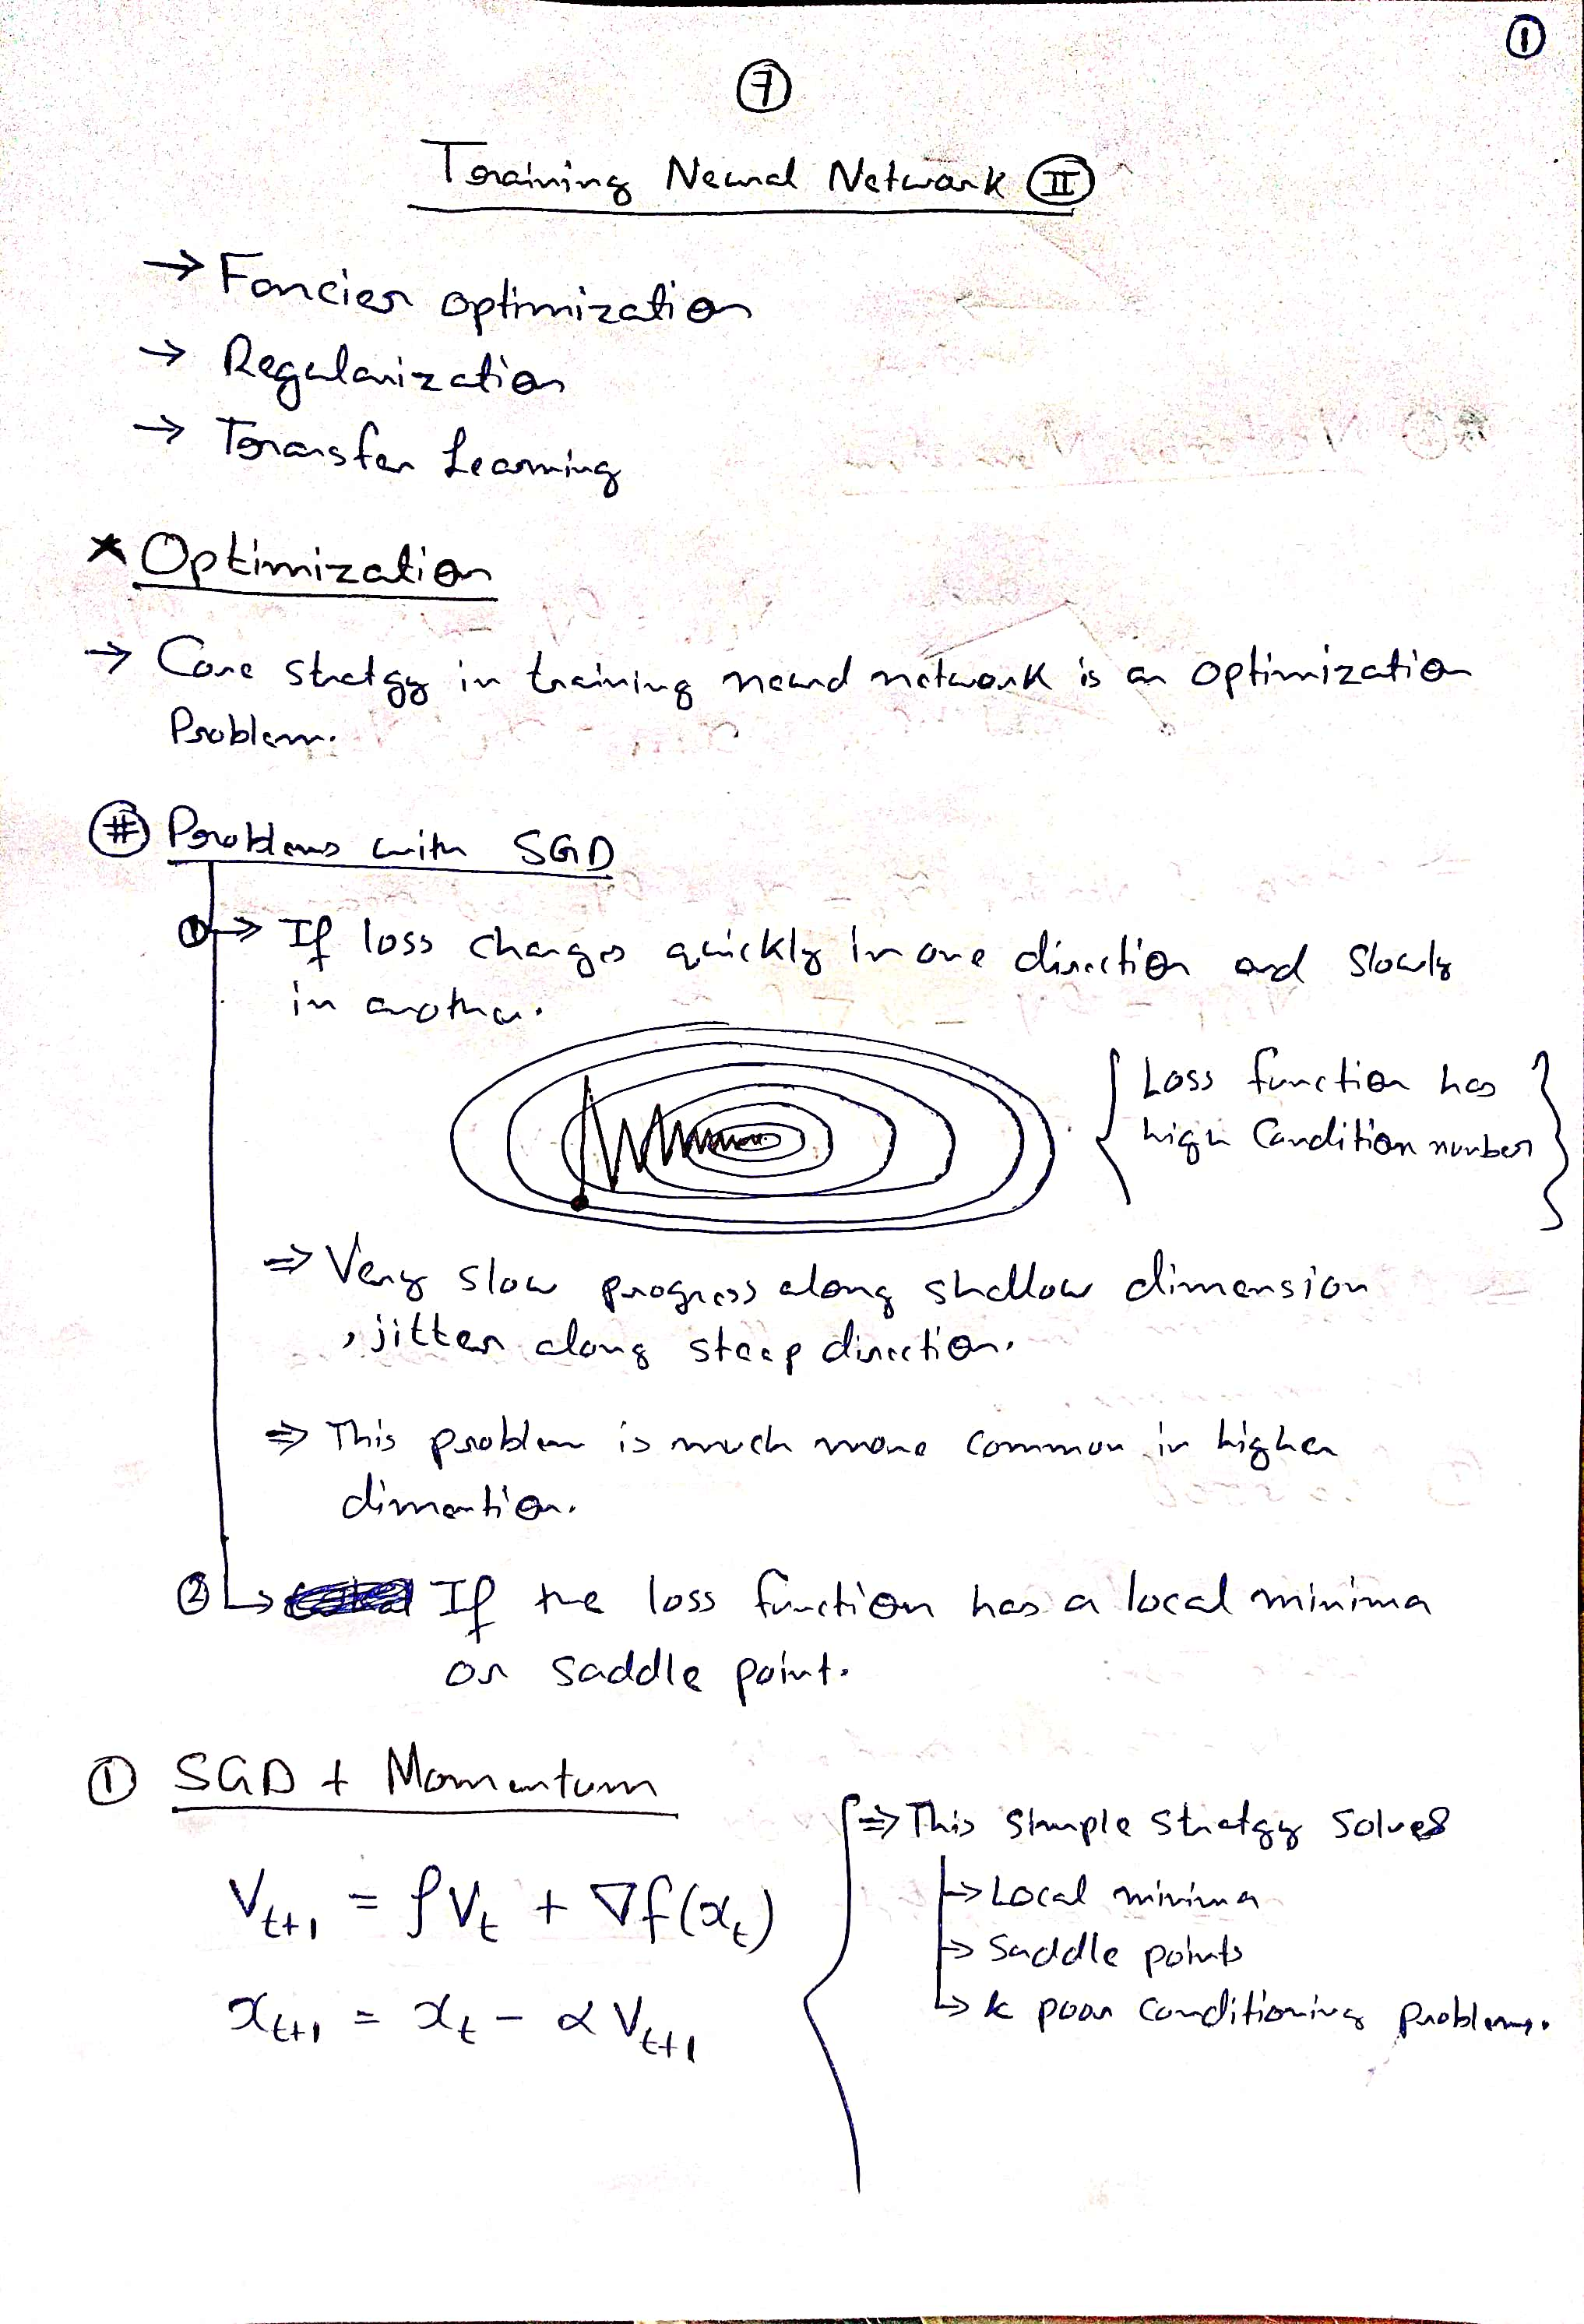 ①
⑦
Training Neural Network Ⅱ
→ Fancier optimization
→ Regularization
→ Transfer Learning
* Optimization
→ Core stratgy in training neural network is an optimization
Problem.
# Problems with SGD
① → If loss changes quickly in one direction and slowly
in another.
{ Loss function has
high Condition number }
⇒ Very slow progress along shallow dimension
, jitter along steep direction.
⇒ This problem is much more common in higher
dimention.
② ↳ If the loss function has a local minima
or saddle point.
① SGD + Momentum
V_{t+1} = ρV_t + ∇f(x_t)
x_{t+1} = x_t - αV_{t+1}
{ ⇒ This simple stratgy solves
→ Local minima
→ Saddle points
↳ & poor conditioning problems.